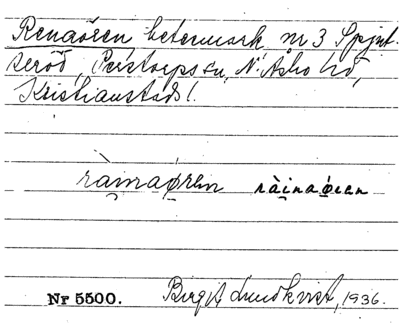 Renaören betesmark, nr 3 Spjut-
seröd, Perstorps sn, N. Åsbo hd,
Kristianstads l.
ràinaøren ràinaøren
Nr 5500. Birgit Lundkvist, 1936.